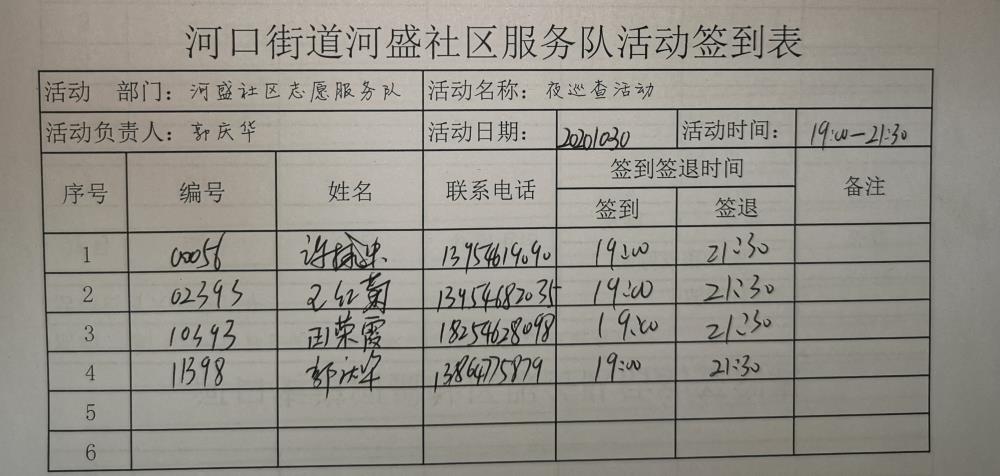 河口街道河盛社区服务队活动签到表
活动 部门：河盛社区志愿服务队 活动名称：夜巡查活动
活动负责人：郭庆华 活动日期：20201030 活动时间：19:00—21:30
序号 编号 姓名 联系电话 签到签退时间 备注
签到 签退
1 00056 13954619090 19:00 21:30
2 02393 王红菊 13954682035 19:00 21:30
3 10393 田荣霞 18254628098 19:00 21:30
4 11398 郭庆华 13864775879 19:00 21:30
5
6